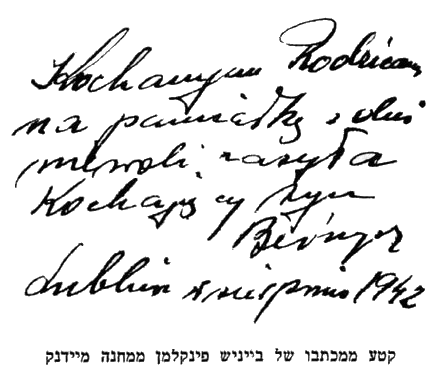 Kochanym Rodzicom
na pamiątkę z dni
niewoli zasyła
Kochający syn
Lublin w sierpniu 1942
קטע ממכתבו של בייניש פינקלמן ממחנה מיידנק